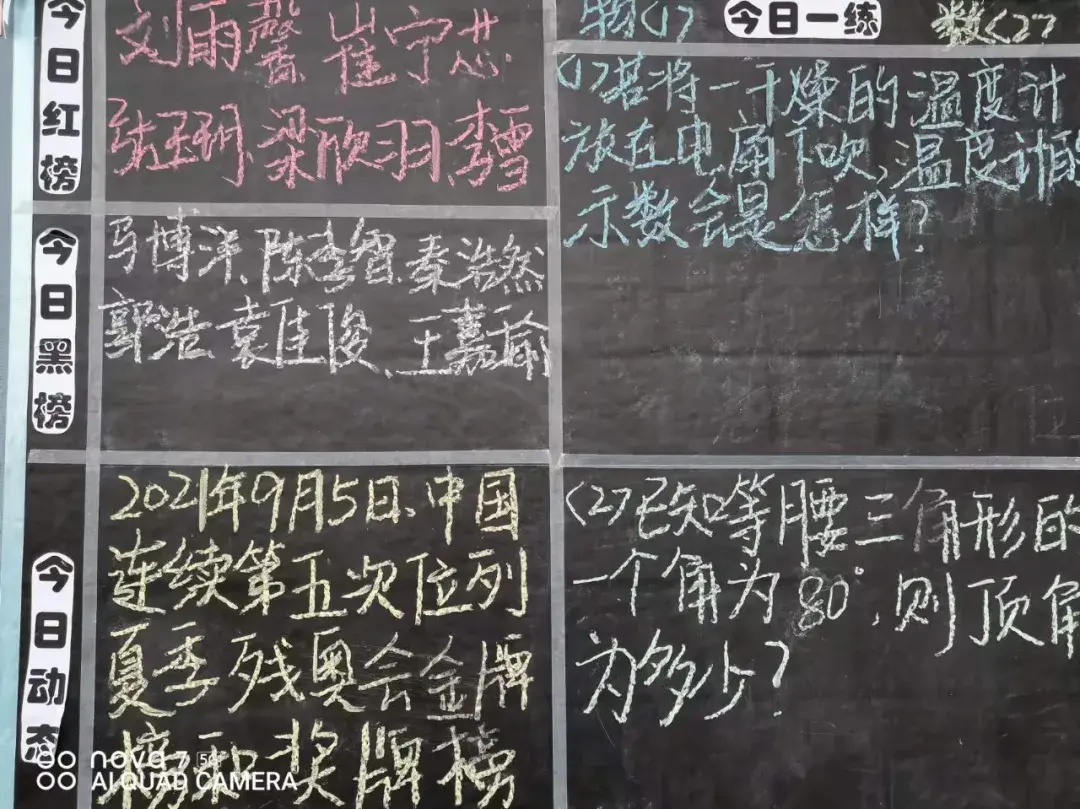 今日红榜
刘雨馨 崔宁芯
张玉珊、梁欣羽、李雪
今日黑榜
马博洋、陈李智、秦浩然
郭浩、袁佳俊、王嘉瑜
今日动态
2021年9月5日、中国
连续第五次位列
夏季残奥会金牌
榜和奖牌榜
物(1)
今日一练
数(2)
(1)若将一干燥的温度计
放在电扇下吹,温度计的
示数会是怎样?
(2)已知等腰三角形的
一个角为80°,则顶角
为多少?
nova 7 5G
AI QUAD CAMERA